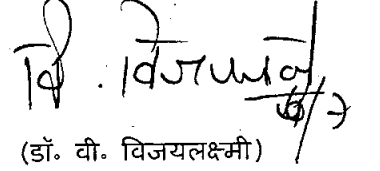 वि. विजयलक्ष्मी
(डॉ. वी. विजयलक्ष्मी)